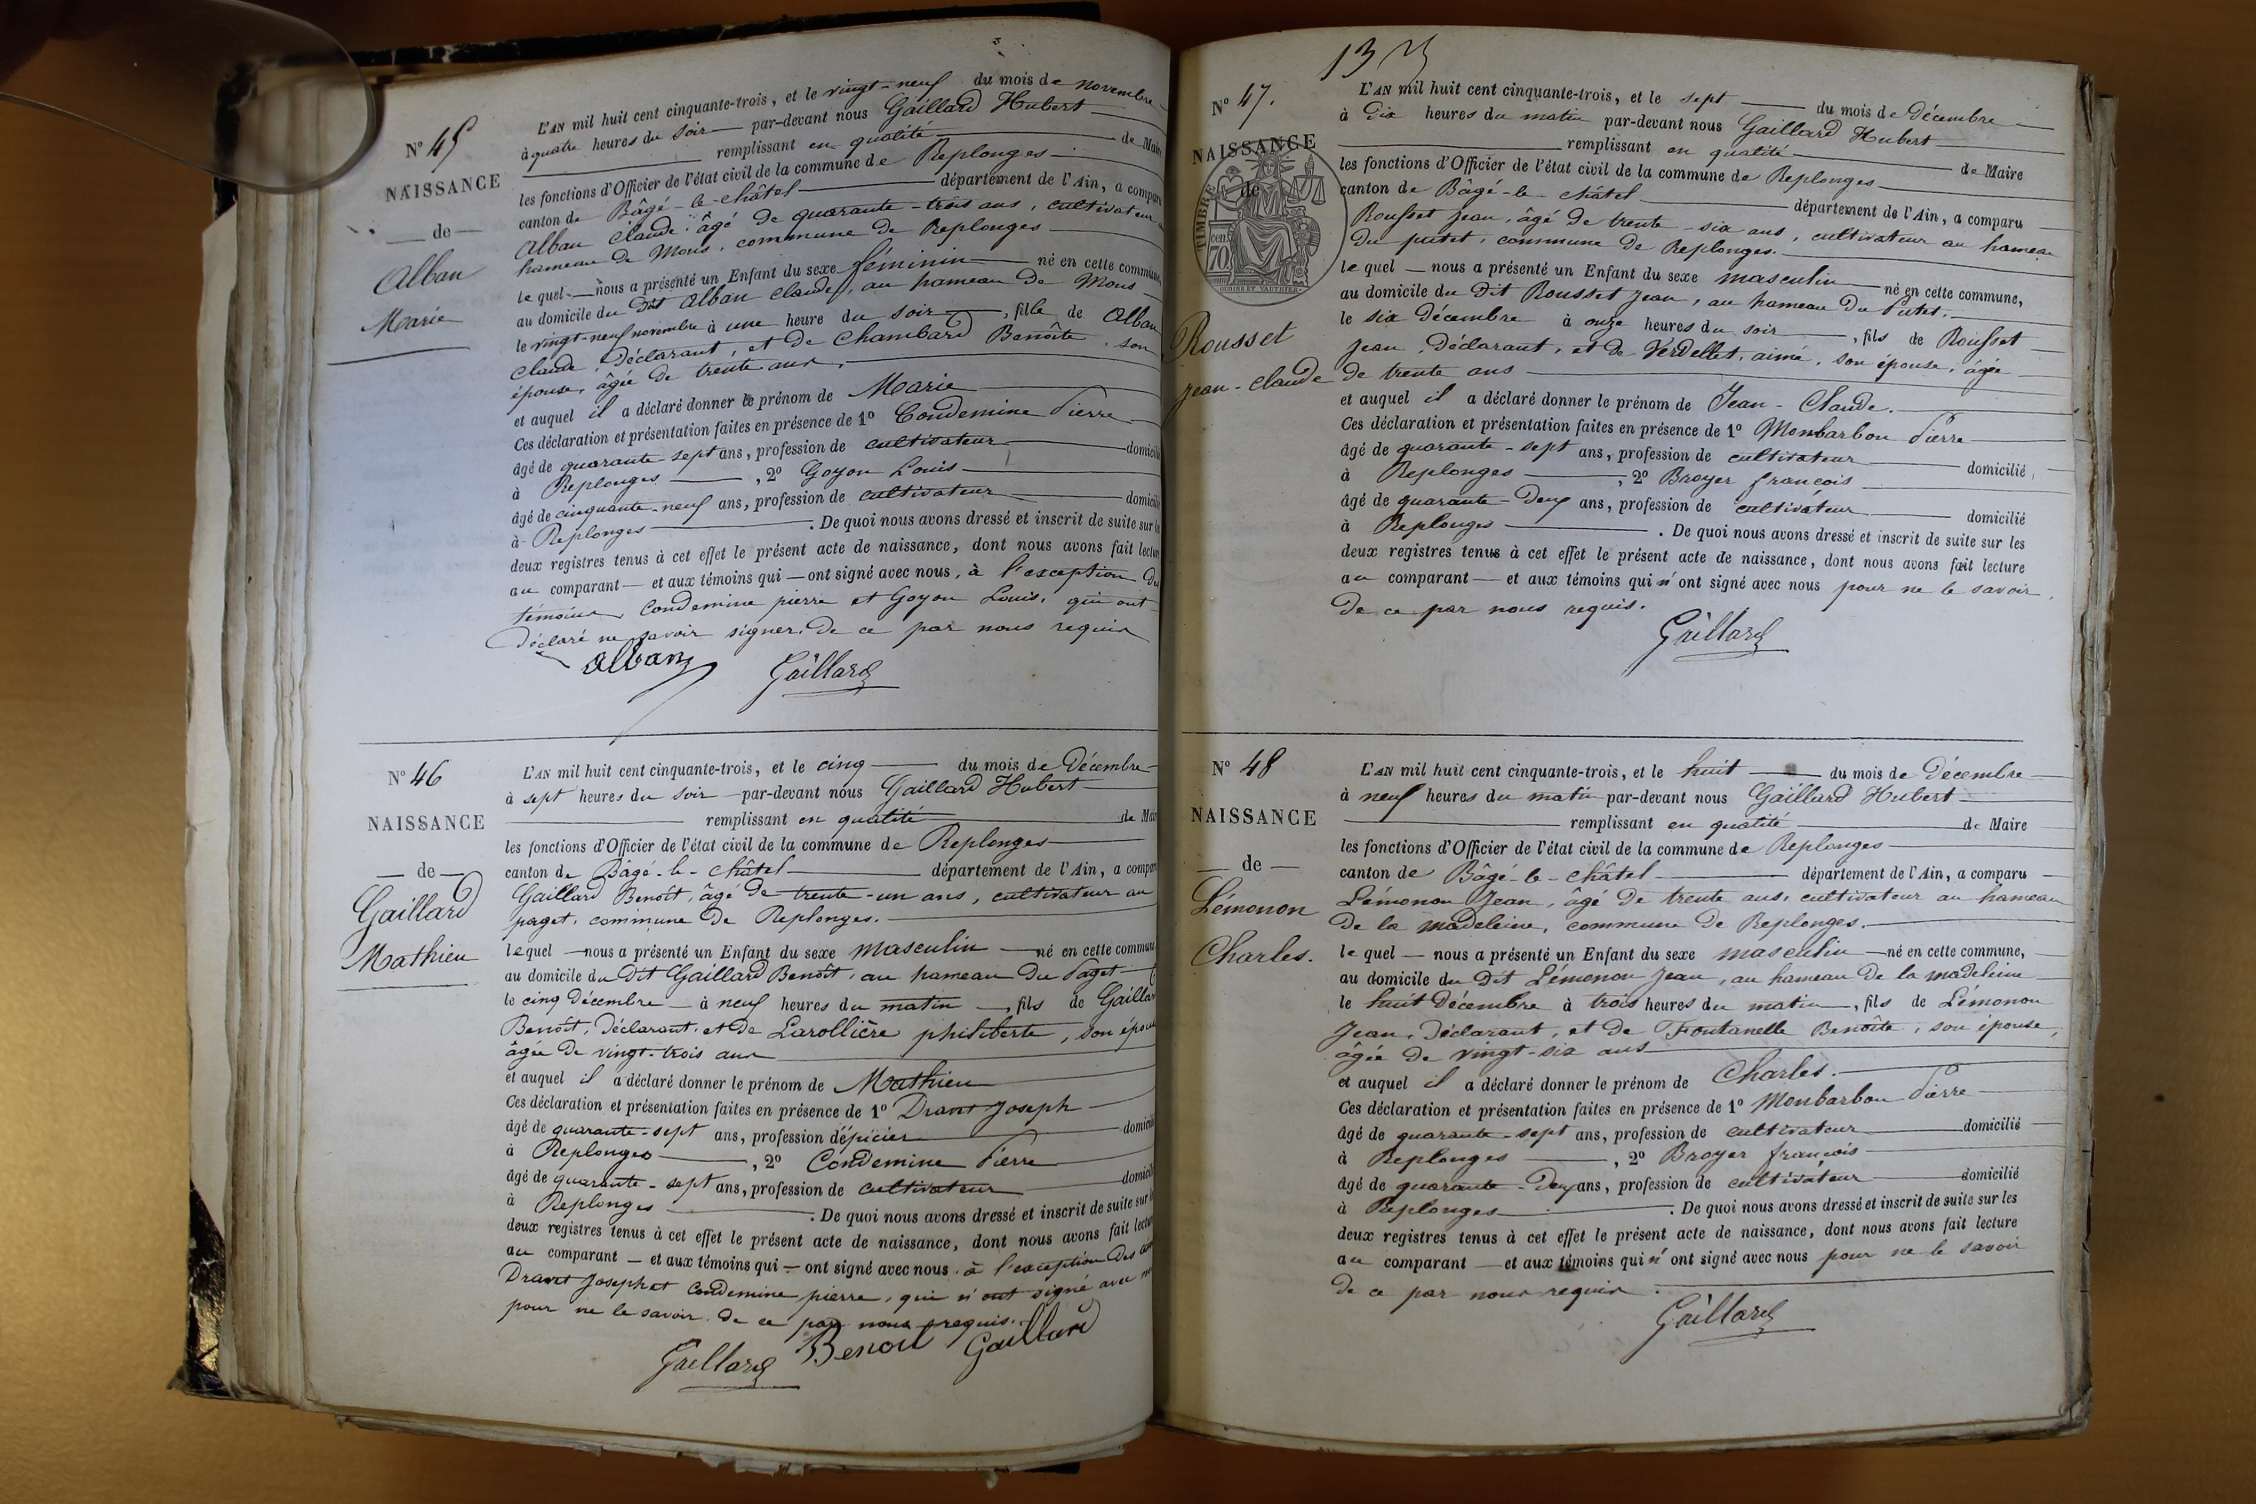 N° 45
NAISSANCE
de
Alban
Marie
L'AN mil huit cent cinquante-trois, et le vingt-neuf du mois de novembre
à quatre heures du soir par-devant nous Gaillard Hubert
remplissant en qualité de Maire
les fonctions d'Officier de l'état civil de la commune de Replonges
canton de Bâgé-le-châtel département de l'Ain, a comparu
Alban Claude, âgé de quarante-trois ans, cultivateur
hameau de Mons, commune de Replonges
lequel nous a présenté un Enfant du sexe féminin né en cette commune
au domicile du Dit Alban Claude, au hameau de Mons
le vingt-neuf novembre à une heure du soir, fille de Alban
Claude, Déclarant, et de Chambard Benoîte, son
épouse, âgée de trente ans,
et auquel il a déclaré donner le prénom de Marie
Ces déclaration et présentation faites en présence de 1° Condemine Pierre
âgé de quarante-sept ans, profession de cultivateur domicilié
à Replonges, 2° Goyon Louis
âgé de cinquante-neuf ans, profession de cultivateur domicilié
à Replonges. De quoi nous avons dressé et inscrit de suite sur les
deux registres tenus à cet effet le présent acte de naissance, dont nous avons fait lecture
au comparant et aux témoins qui ont signé avec nous, à l'exception du
témoins Condemine pierre et Goyon Louis, qui ont
Déclaré ne savoir signer, de ce par nous requis
Alban Gaillard
N° 46
NAISSANCE
de
Gaillard
Mathieu
L'AN mil huit cent cinquante-trois, et le cinq du mois de Décembre
à sept heures du soir par-devant nous Gaillard Hubert
remplissant en qualité de Mai
les fonctions d'Officier de l'état civil de la commune de Replonges
canton de Bâgé-le-châtel département de l'Ain, a comparu
Gaillard Benoît, âgé de trente-un ans, cultivateur au
paget, commune de Replonges.
lequel nous a présenté un Enfant du sexe masculin né en cette commune
au domicile du Dit Gaillard Benoît, au hameau du Paget
le cinq Décembre à neuf heures du matin, fils de Gaillar
Benoît, Déclarant, et de Larollière philiberte, son épouse
âgée de vingt-trois ans
et auquel il a déclaré donner le prénom de Mathieu
Ces déclaration et présentation faites en présence de 1° Dravet Joseph
âgé de quarante-sept ans, profession d'épicier domicilié
à Replonges, 2° Condemine Pierre
âgé de quarante-sept ans, profession de cultivateur domicilié
à Replonges. De quoi nous avons dressé et inscrit de suite sur
deux registres tenus à cet effet le présent acte de naissance, dont nous avons fait lecture
au comparant et aux témoins qui ont signé avec nous à l'exception des
Dravet Joseph et Condemine pierre, qui n'ont signé avec
pour ne le savoir de ce par nous requis.
Gaillard Benoit Gaillard
13
N° 47.
NAISSANCE
de
TIMBRE
cen.
70
Rousset
Jean-Claude
L'AN mil huit cent cinquante-trois, et le sept du mois de Décembre
à Dix heures du matin par-devant nous Gaillard Hubert
remplissant en qualité de Maire
les fonctions d'Officier de l'état civil de la commune de Replonges
canton de Bâgé-le-châtel département de l'Ain, a comparu
Rousset Jean, âgé de trente-six ans, cultivateur au hameau
du putet, commune de Replonges.
lequel nous a présenté un Enfant du sexe masculin né en cette commune,
au domicile du Dit Rousset Jean, au hameau du Putet,
le six Décembre à onze heures du soir, fils de Rousset
Jean, Déclarant, et de Verdellet, aimé, son épouse, âgée
de trente ans
et auquel il a déclaré donner le prénom de Jean-Claude.
Ces déclaration et présentation faites en présence de 1° Monbarbon Pierre
âgé de quarante-sept ans, profession de cultivateur domicilié
à Replonges, 2° Broyer françois
âgé de quarante-Deux ans, profession de cultivateur domicilié
à Replonges. De quoi nous avons dressé et inscrit de suite sur les
deux registres tenus à cet effet le présent acte de naissance, dont nous avons fait lecture
au comparant et aux témoins qui n'ont signé avec nous pour ne le savoir
de ce par nous requis.
Gaillard
N° 48
NAISSANCE
de
Lémonon
Charles.
L'AN mil huit cent cinquante-trois, et le huit du mois de Décembre
à neuf heures du matin par-devant nous Gaillard Hubert
remplissant en qualité de Maire
les fonctions d'Officier de l'état civil de la commune de Replonges
canton de Bâgé-le-châtel département de l'Ain, a comparu
Lémonon Jean, âgé de trente ans, cultivateur au hameau
de la madeleine, commune de Replonges.
lequel nous a présenté un Enfant du sexe masculin né en cette commune,
au domicile du Dit Lémonon Jean, au hameau de la madeleine
le huit Décembre à trois heures du matin, fils de Lémonon
Jean, Déclarant, et de Fontanelle Benoîte, son épouse,
âgée de vingt-six ans
et auquel il a déclaré donner le prénom de Charles.
Ces déclaration et présentation faites en présence de 1° Monbarbon Pierre
âgé de quarante-sept ans, profession de cultivateur domicilié
à Replonges, 2° Broyer françois
âgé de quarante-Deux ans, profession de cultivateur domicilié
à Replonges. De quoi nous avons dressé et inscrit de suite sur les
deux registres tenus à cet effet le présent acte de naissance, dont nous avons fait lecture
au comparant et aux témoins qui n'ont signé avec nous pour ne le savoir
de ce par nous requis.
Gaillard